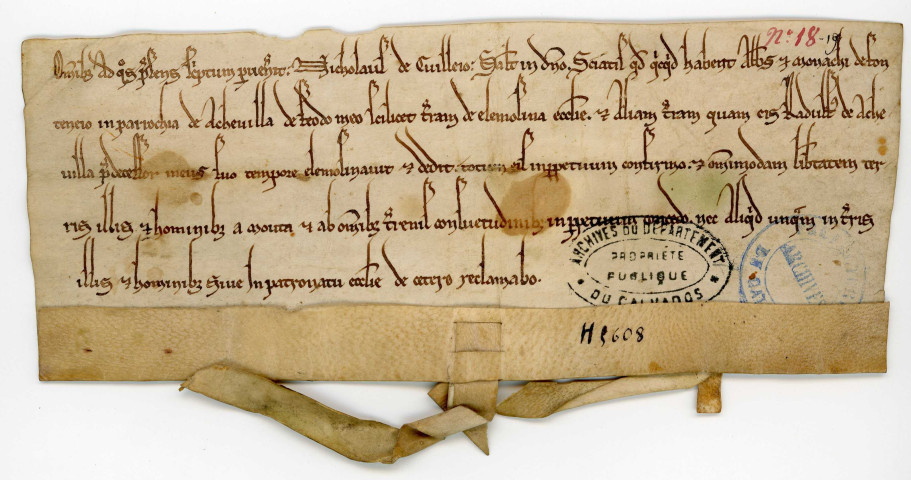 N° 18 19
Omib; ad qos p̃sens sc̃ptum puen̾it. Nicholaus de Cuilleio. Salt̃ in dño. Sciatis qd qicqd habent Abbs ⁊ monachi de fon
teneio in parrochia de Achevilla de feodo meo scilicet t̃ram de elemosina ecclie. ⁊ Aliam t̃ram quam eis Radulf̃ de Ache
villa p̃decessor meus suo tempore elemosinauit ⁊ dedit. totum eis inppetuum confirmo. ⁊ omnimodam lib̃tatem ter
ris illis ⁊ hominib; a mouta ⁊ ab omib; t̃renis consuetudinib; inppetuum concedo. nec aliqid unqam in t̃ris
illis ⁊ hominib; siue in patronatu ecclie de cetero reclamabo.
ARCHIVES DU DÉPARTEMENT
PROPRIÉTÉ
PUBLIQUE
DU CALVADOS
ARCHIVES
H 5608